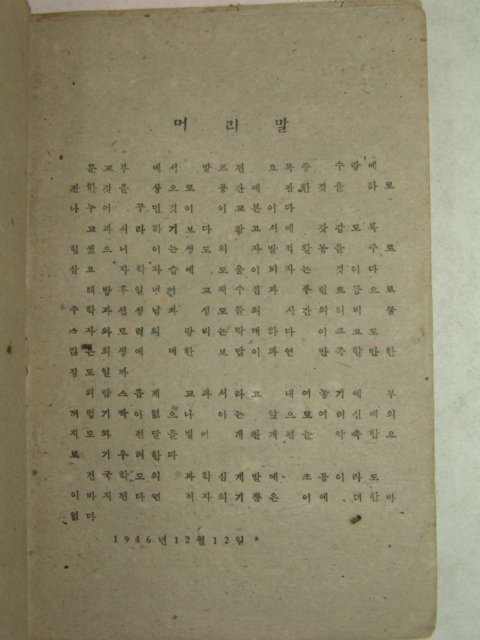 머 리 말
문교부 에서 발포된 요목중 수량에
관한것을 상으로 공간에 관한것을 하로
나누어 꾸민것이 이교본이다
교과서라하기보다 참고서에 갖갑도록
힘썼으니 이는생도의 자발적활동을 주로
삼고 자학자습에 도움이되자는 것이다
해방후일년연 교재수집과 푸린트등으로
수학과선생님과 생도들의 시간의허비 물
스자와로력의 랑비는막대하다 이크고도
많은희생에 대한 보답이과연 만족할만한
정도일까
외람스릅게 교과서라고 내여놓기에 부
꺼럽기짝이없으나 이는 앞으로여러선배의
지도와 편달을빌어 개찬개편을 약속함으
로 기우려한다
건국학도의 과학심계발에 조곰이라도
이바지된다면 저자의기쁨은 이에 더한바
없다
1946년12월12일